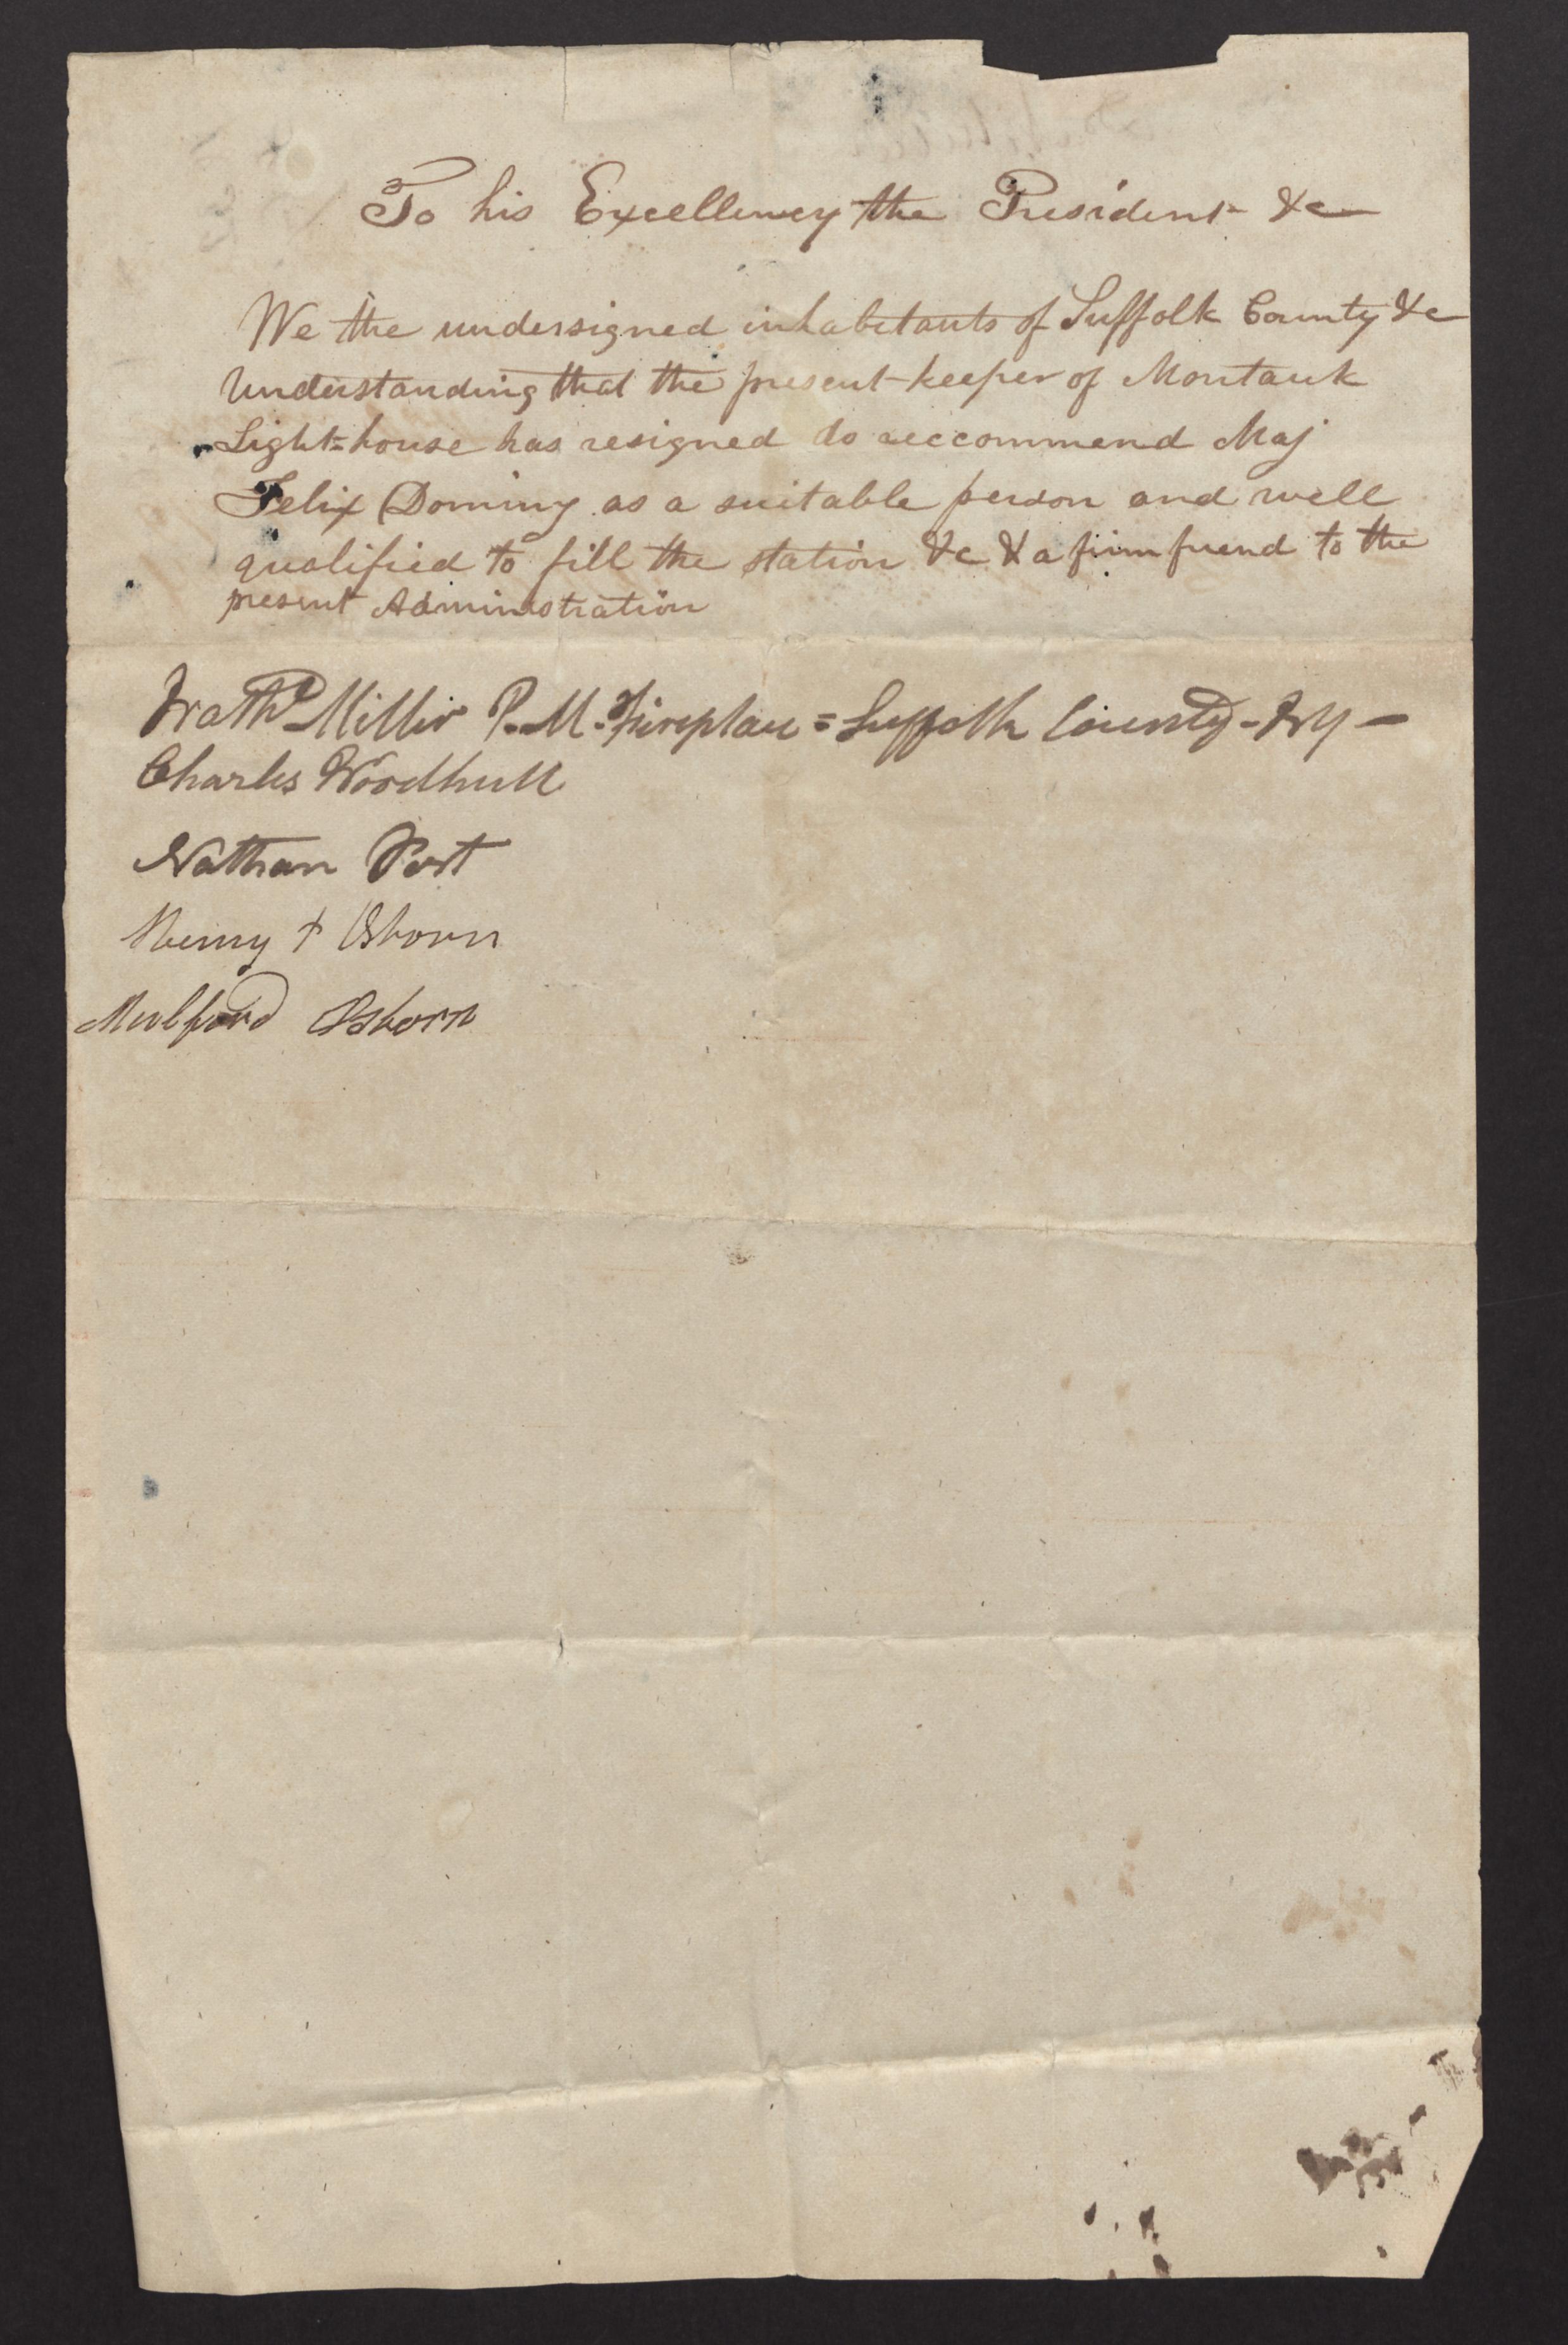 To his Excellency the President &c
We the undersigned inhabitants of Suffolk County &c
Understanding that the present keeper of Montauk
Light=house has resigned do reccommend Maj
Felix Dominy as a suitable person and well
qualified to fill the station &c & a firm friend to the
present Administration
Nathl Miller P.M. Fireplace = Suffolk County - NY -
Charles Woodhull
Nathan Post
Henry Osborn
Mulford Osborn